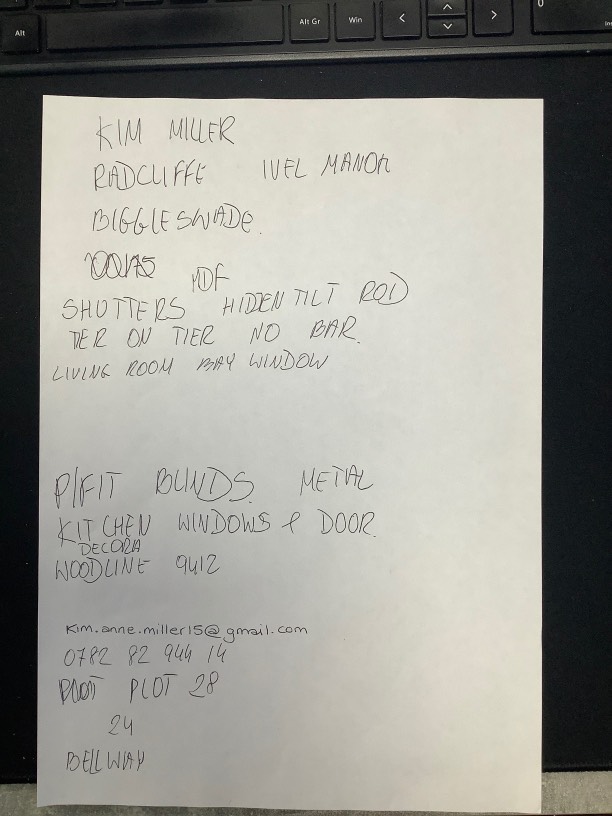 Alt
Alt Gr
Win
KIM MILLER
RADCLIFFE IVEL MANOR
BIGGLESWADE.
MDF
SHUTTERS HIDEN TILT ROD
TIER ON TIER NO BAR.
LIVING ROOM BAY WINDOW
P/FIT BLINDS METAL
KITCHEN WINDOWS & DOOR.
DECORA
WOODLINE 9412
Kim.anne.miller15@gmail.com
0782 82 944 14
PLOT 28
24
BELLWAY